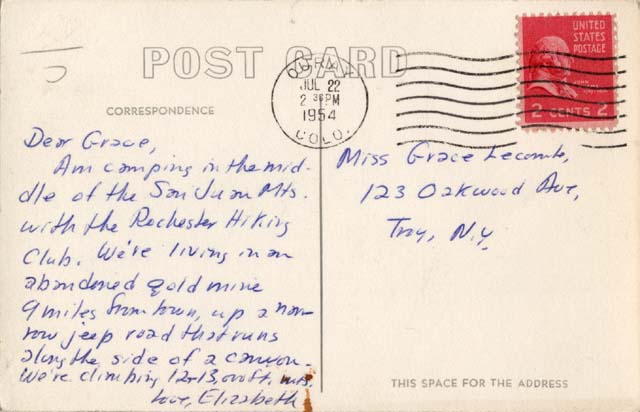 POST CARD
OURAY
JUL 22
2 30 PM
1954
COLO.
UNITED
STATES
POSTAGE
2 CENTS 2
CORRESPONDENCE
Dear Grace,
Am camping in the mid-
dle of the San Juan Mts.
with the Rochester Hiking
Club. We're living in an
abandoned gold mine
9 miles from town, up a nar-
row jeep road that runs
along the side of a canyon.
We're climbing 12-13,000 ft. mts.
Love, Elizabeth
Miss Grace Lecomb,
123 Oakwood Ave,
Troy, N.Y.
THIS SPACE FOR THE ADDRESS